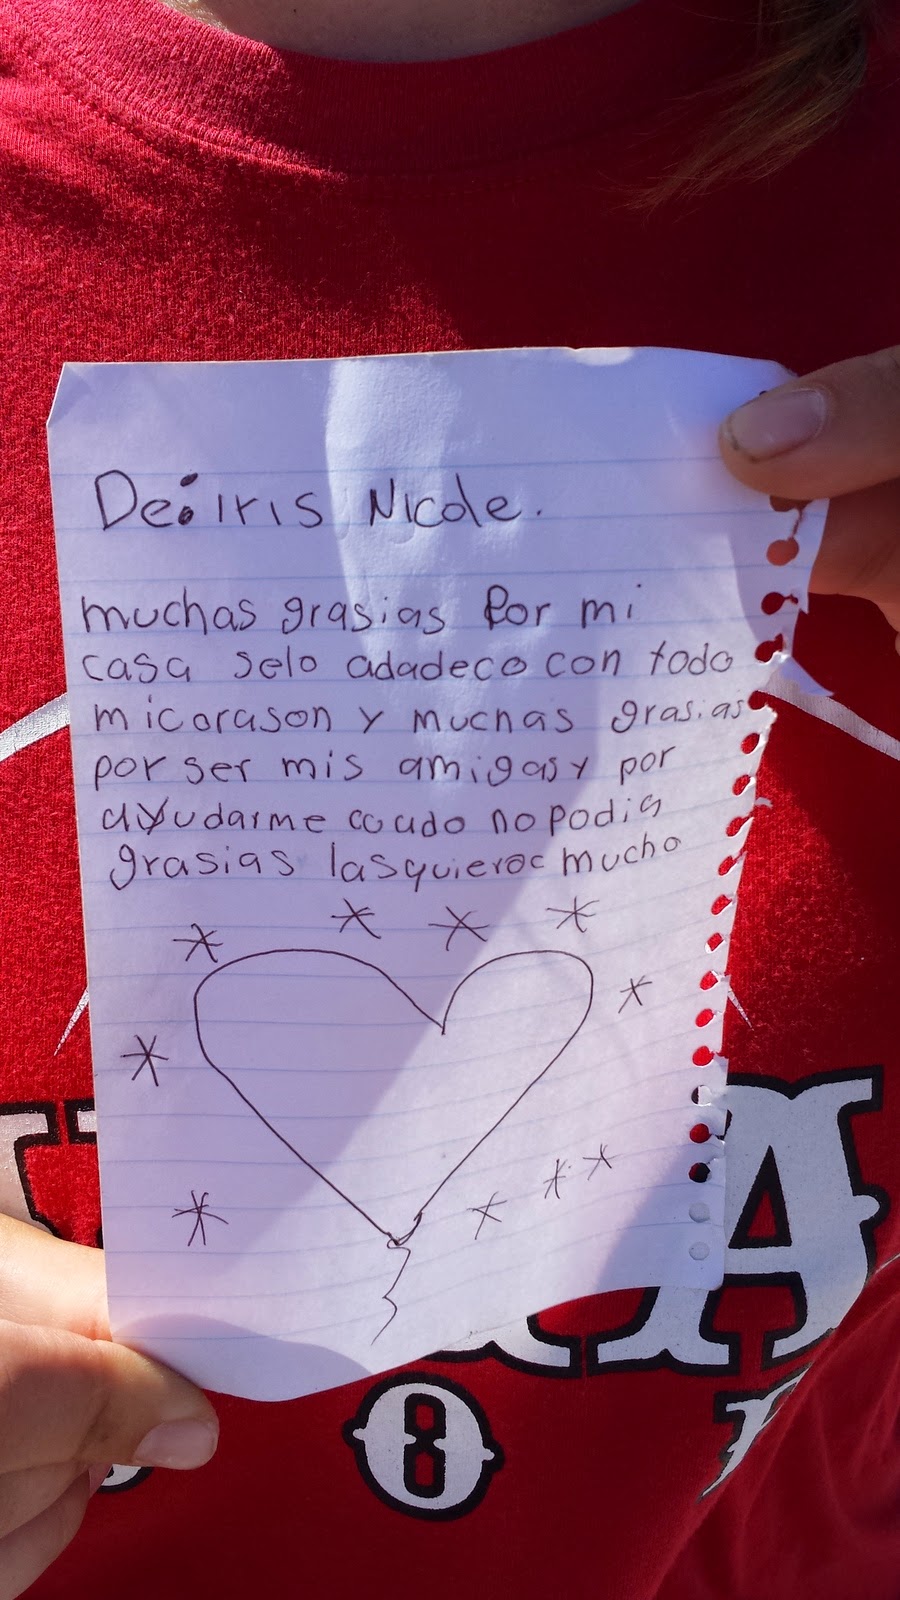 De: Iris Nicole.
muchas grasias Por mi
casa selo adadeco con todo
micorason y muchas grasias
por ser mis amigas y por
ayudarme couado no podia
grasias lasquieroc mucho
A
8